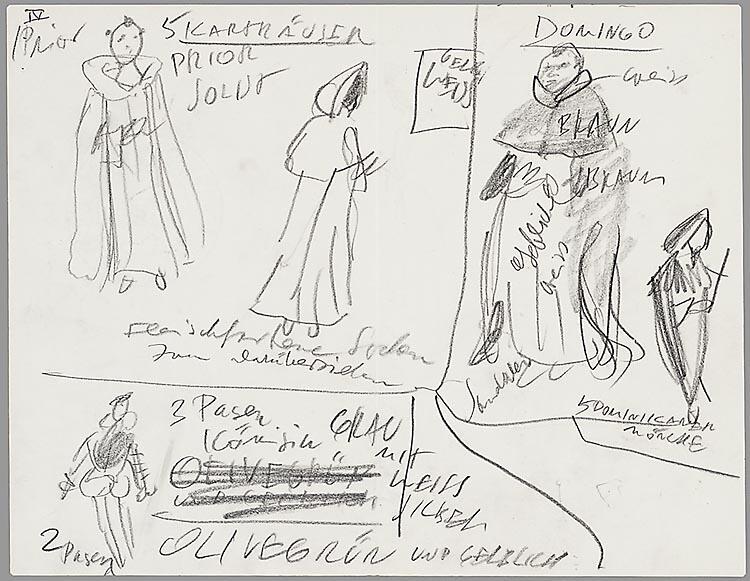 IV
1 Prior
5 KARTHÄUSER
PRIOR
SOLDT
GELB
WEISS
DOMINGO
Weiss
BRAUN
BRAUN
Gelblich
Weiss
Sandalen
Fleischfarbene Socken
zum darüberziehen
5 DOMINIKANER
MÖNCHE
3 Pagen
Königin
GRAU
MIT
WEISS
OLIVEGRÜN
UND GELBLICH
2 Pagen
OLIVEGRÜN UND GELBLICH